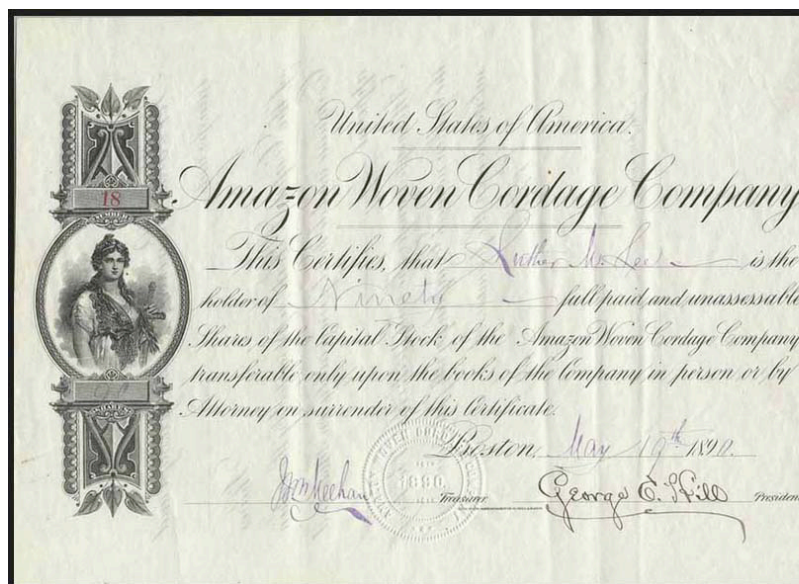 United States of America.
Amazon Woven Cordage Company
18
NUMBER
This Certifies, that Luther W. Lee is the
holder of Ninety full paid and unassessable
Shares of the Capital Stock of the Amazon Woven Cordage Company
transferable only upon the books of the Company in person or by
Attorney on surrender of this Certificate.
SHARES
Boston, May 19th 1890.
1890
Treasurer
George E. Hill President